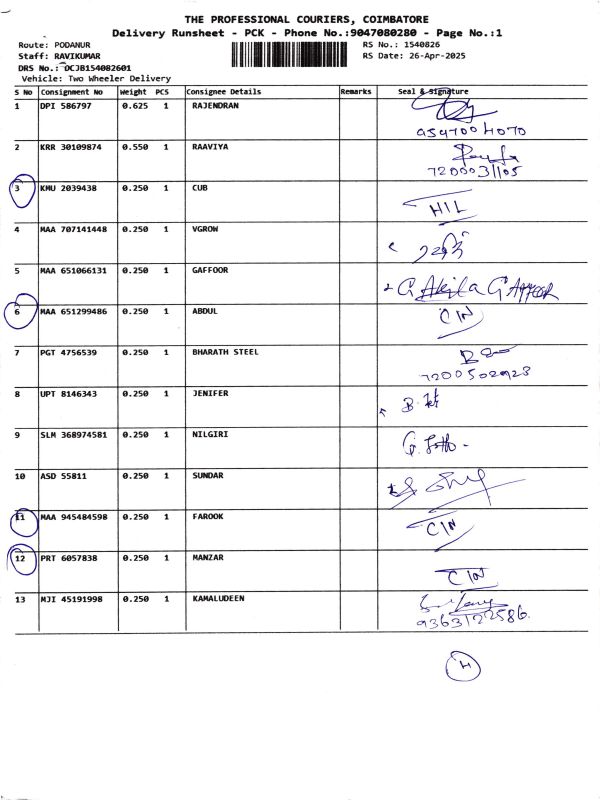 THE PROFESSIONAL COURIERS, COIMBATORE
Delivery Runsheet - PCK - Phone No.:9047080280 - Page No.:1
Route: PODANUR
RS No.: 1540826
Staff: RAVIKUMAR
RS Date: 26-Apr-2025
DRS No.: DCJB154082601
Vehicle: Two Wheeler Delivery
S No Consignment No Weight PCS Consignee Details Remarks Seal & Signature
1 DPI 586797 0.625 1 RAJENDRAN
2 KRR 30109874 0.550 1 RAAVIYA
7200031105
3 KMU 2039438 0.250 1 CUB
HIL
4 MAA 707141448 0.250 1 VGROW
5 MAA 651066131 0.250 1 GAFFOOR
G Akila GAffoor
6 MAA 651299486 0.250 1 ABDUL
CIN
7 PGT 4756539 0.250 1 BHARATH STEEL
7200502923
8 UPT 8146343 0.250 1 JENIFER
9 SLM 368974581 0.250 1 NILGIRI
10 ASD 55811 0.250 1 SUNDAR
11 MAA 945484598 0.250 1 FAROOK
CIN
12 PRT 6057838 0.250 1 MANZAR
CIN
13 MJI 45191998 0.250 1 KAMALUDEEN
9363122586